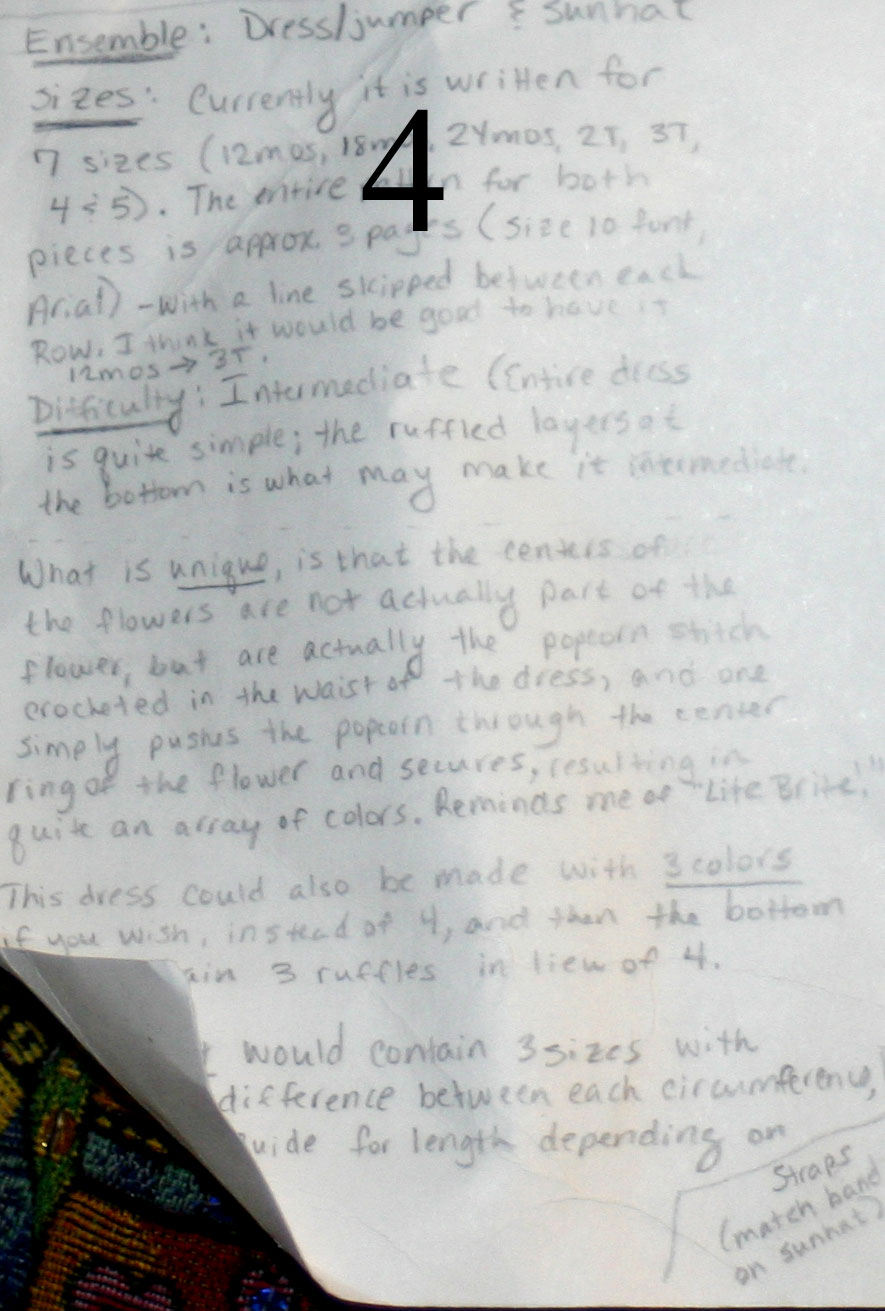 Ensemble: Dress/jumper & sunhat
Sizes: Currently it is written for
4
7 sizes (12mos, 18mos, 24mos, 2T, 3T,
4 & 5). The entire for both
pieces is approx. 3 pages (size 10 font,
Arial) - with a line skipped between each
Row. I think it would be good to have it
12mos → 3T.
Difficulty: Intermediate (Entire dress
is quite simple; the ruffled layers at
the bottom is what may make it intermediate.
What is unique, is that the centers of
the flowers are not actually part of the
flower, but are actually the popcorn stitch
crocheted in the waist of the dress, and one
simply pushes the popcorn through the center
ring of the flower and secures, resulting in
quite an array of colors. Reminds me of "Lite Brite!"
This dress could also be made with 3 colors
if you wish, instead of 4, and then the bottom
ain 3 ruffles in lieu of 4.
t would contain 3 sizes with
difference between each circumference,
uide for length depending on
Straps
(match band
on sunhat)